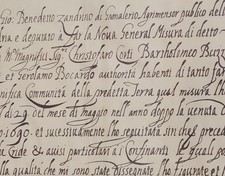 Benedetto Zandrino di Gamalerio Agrimensor publico dell
e deputato a far la Nova General Misura di detto
Mᵗᵒ Magnifici Sigʳⁱ Christofaro Conti Bartholomeo
et Gerolamo Boccardo authorità haventi di tanto far
Communità della predetta Terra qual misura l'h
di 29 del mese di maggio nell'anno doppo la venuta
1690 et sucessivamente l'ho seguitata sin
Cride & avisi particolari a i Confinanti le quali
qualità che mi sono state Dissegnate l'ho figurate et